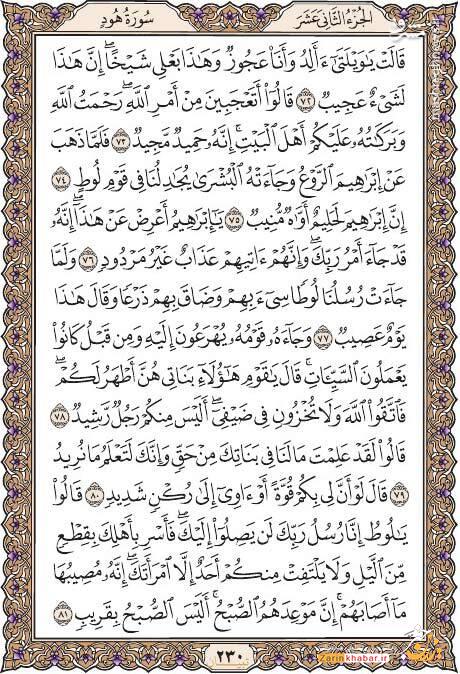 الجزء الثاني عشر
سورة هود
قَالَتْ يَٰوَيْلَتَىٰٓ ءَأَلِدُ وَأَنَا۠ عَجُوزٌ وَهَٰذَا بَعْلِى شَيْخًا ۖ إِنَّ هَٰذَا
لَشَىْءٌ عَجِيبٌ ٧٢ قَالُوٓا۟ أَتَعْجَبِينَ مِنْ أَمْرِ ٱللَّهِ ۖ رَحْمَتُ ٱللَّهِ
وَبَرَكَٰتُهُۥ عَلَيْكُمْ أَهْلَ ٱلْبَيْتِ ۚ إِنَّهُۥ حَمِيدٌ مَّجِيدٌ ٧٣ فَلَمَّا ذَهَبَ
عَنْ إِبْرَٰهِيمَ ٱلرَّوْعُ وَجَآءَتْهُ ٱلْبُشْرَىٰ يُجَٰدِلُنَا فِى قَوْمِ لُوطٍ ٧٤
إِنَّ إِبْرَٰهِيمَ لَحَلِيمٌ أَوَّٰهٌ مُّنِيبٌ ٧٥ يَٰٓإِبْرَٰهِيمُ أَعْرِضْ عَنْ هَٰذَآ ۖ إِنَّهُۥ
قَدْ جَآءَ أَمْرُ رَبِّكَ ۖ وَإِنَّهُمْ ءَاتِيهِمْ عَذَابٌ غَيْرُ مَرْدُودٍ ٧٦ وَلَمَّا
جَآءَتْ رُسُلُنَا لُوطًا سِىٓءَ بِهِمْ وَضَاقَ بِهِمْ ذَرْعًا وَقَالَ هَٰذَا
يَوْمٌ عَصِيبٌ ٧٧ وَجَآءَهُۥ قَوْمُهُۥ يُهْرَعُونَ إِلَيْهِ وَمِن قَبْلُ كَانُوا۟
يَعْمَلُونَ ٱلسَّيِّـَٔاتِ ۚ قَالَ يَٰقَوْمِ هَٰٓؤُلَآءِ بَنَاتِى هُنَّ أَطْهَرُ لَكُمْ ۖ
فَٱتَّقُوا۟ ٱللَّهَ وَلَا تُخْزُونِ فِى ضَيْفِىٓ ۖ أَلَيْسَ مِنكُمْ رَجُلٌ رَّشِيدٌ ٧٨
قَالُوا۟ لَقَدْ عَلِمْتَ مَا لَنَا فِى بَنَاتِكَ مِنْ حَقٍّ وَإِنَّكَ لَتَعْلَمُ مَا نُرِيدُ
٧٩ قَالَ لَوْ أَنَّ لِى بِكُمْ قُوَّةً أَوْ ءَاوِىٓ إِلَىٰ رُكْنٍ شَدِيدٍ ٨٠ قَالُوا۟
يَٰلُوطُ إِنَّا رُسُلُ رَبِّكَ لَن يَصِلُوٓا۟ إِلَيْكَ ۖ فَأَسْرِ بِأَهْلِكَ بِقِطْعٍ
مِّنَ ٱلَّيْلِ وَلَا يَلْتَفِتْ مِنكُمْ أَحَدٌ إِلَّا ٱمْرَأَتَكَ ۖ إِنَّهُۥ مُصِيبُهَا
مَآ أَصَابَهُمْ ۚ إِنَّ مَوْعِدَهُمُ ٱلصُّبْحُ ۚ أَلَيْسَ ٱلصُّبْحُ بِقَرِيبٍ ٨١
٢٣٠
Zarinkhabar.ir